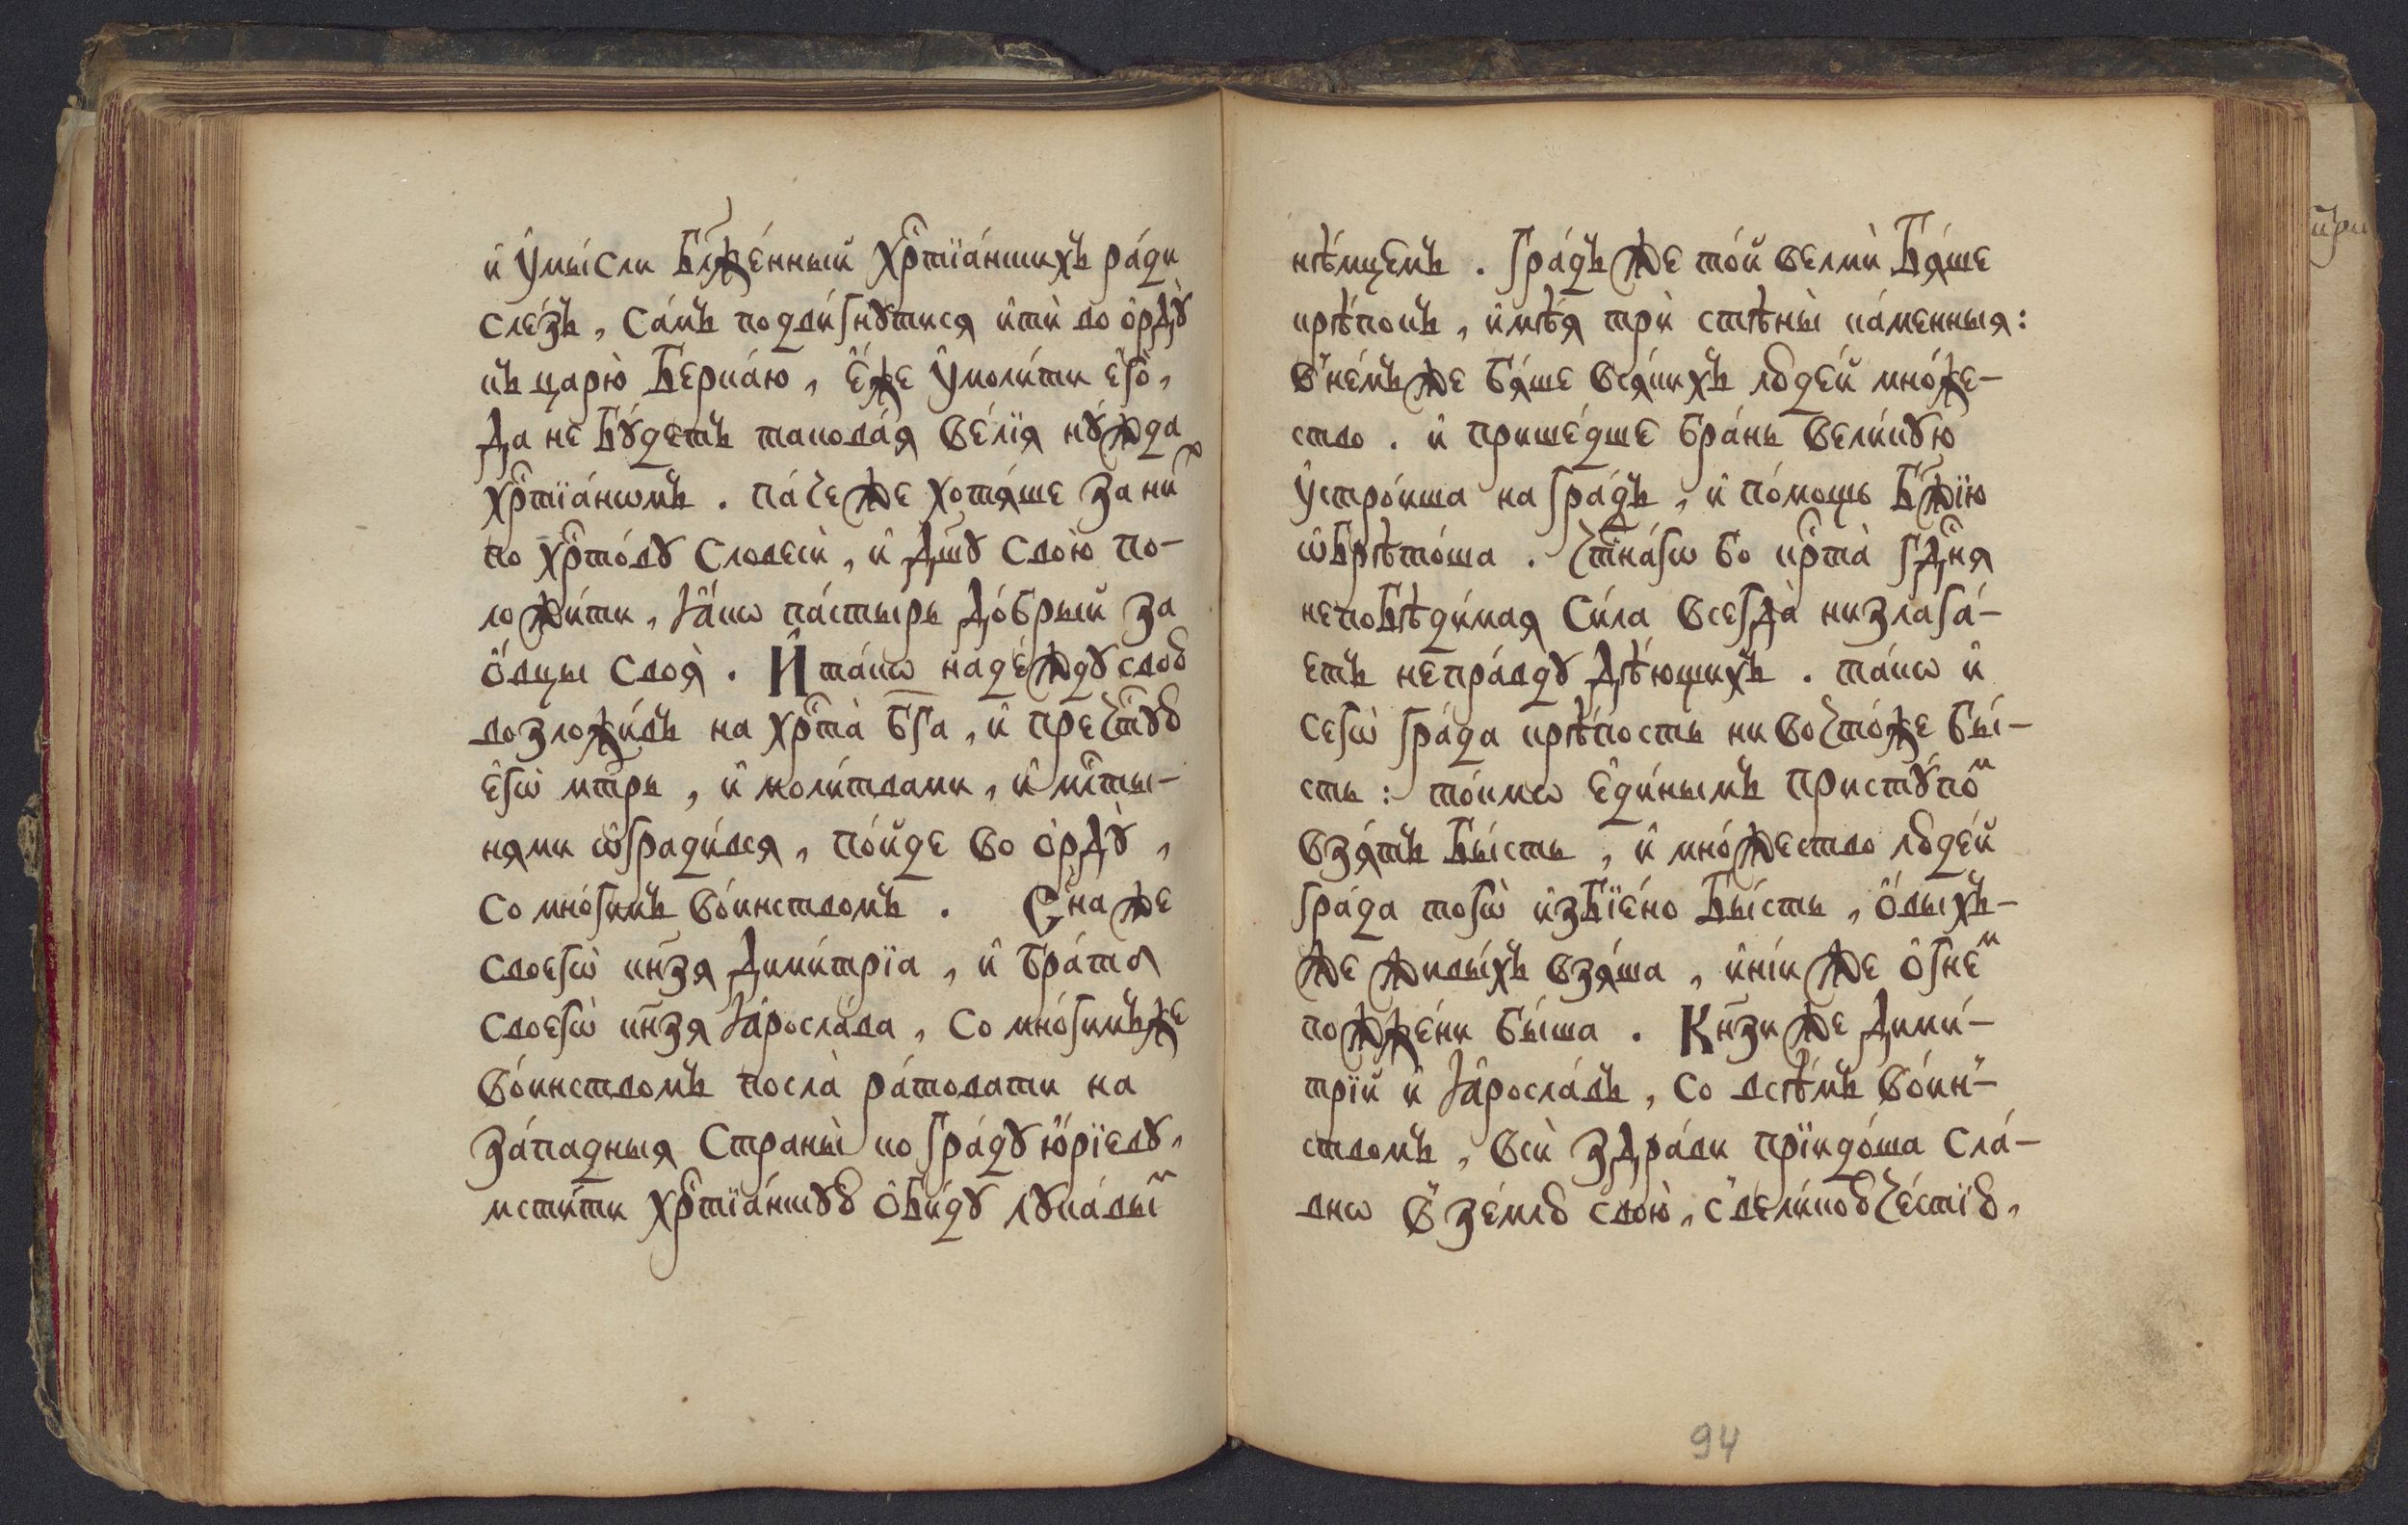 и҆ ᲂу҆мы́сли бл҃же́нный хрⷭ҇тїа́нскихъ ра́ди
сле́зъ, са́мъ подви́гнꙋтися и҆тѝ во ѻ҆рдꙋ̀
къ царю̀ берка́ю, є҆́же ᲂу҆моли́ти є҆го̀,
да не бꙋ́детъ такова́я ве́лїя нꙋ́жда
хрⷭ҇тїа́нѡмъ. па́че же хотѧ́ше за ниⷯ
по хрⷭ҇то́вꙋ словесѝ, и҆ дш҃ꙋ свою̀ по-
ложи́ти, ꙗ҆́кѡ па́стырь до́брый за
ѻ҆́вцы своѧ̀. И҆ та́кѡ наде́ждꙋ свою
возложи́въ на хрⷭ҇та̀ бг҃а, и҆ пречⷭ҇тꙋю
є҆гѡ̀ мт҃рь, и҆ моли́твами, и҆ млⷭ҇ты-
нями ѡ҆гради́вся, по́йде во ѻ҆рдꙋ̀,
со мно́гимъ во́инствомъ. Сн҃а же
своегѡ̀ кн҃зя Дими́трїа, и҆ бра́та
своегѡ̀ кн҃зя ꙗ҆росла́ва, со мно́гимъ же
во́инствомъ посла̀ ра́товати на
за́падныя страны̀ ко гра́дꙋ ю҆́рїевꙋ,
мсти́ти хрⷭ҇тїа́нскꙋю ѻ҆би́дꙋ лꙋка́выⷨ
нѣ́мцемъ. гра́дъ же то́й велмѝ бѧ́ше
крѣ́покъ, и҆мѣ́я трѝ стѣны̀ ка́менныя:
в̾ не́мъ же бѧ́ше всѧ́кихъ люде́й мно́же-
ство. и҆ прише́дше бра́нь вели́кꙋю
ᲂу҆стро́иша на гра́дъ, и҆ по́мощь бж҃їю
ѡ҆брѣто́ша. чⷭ҇тна́гѡ бо крⷭ҇та̀ гдⷭ҇ня
непобѣди́мая си́ла всегда̀ низлага́-
етъ непра́вдꙋ дѣ́ющихъ. та́кѡ и҆
сегѡ̀ гра́да крѣ́пость ни во что́же бы́-
сть: то́кмѡ є҆ди́нымъ пристꙋ́поⷨ
взѧ́тъ бы́сть, и҆ мно́жество люде́й
гра́да тогѡ̀ и҆збїе́но бы́сть, ѻ҆́выхъ-
же живы́хъ взѧ́ша, и҆ні́и же ѻ҆гне́ⷨ
пожже́ни бы́ша. Кн҃зи же Дими́-
трїй и҆ ꙗ҆росла́въ, со всѣ́мъ во́ин̾-
ствомъ, всѝ здра́ви прїидо́ша сла́-
внѡ в̾ зе́млю свою̀, с̾ вели́кою че́стїю,
94